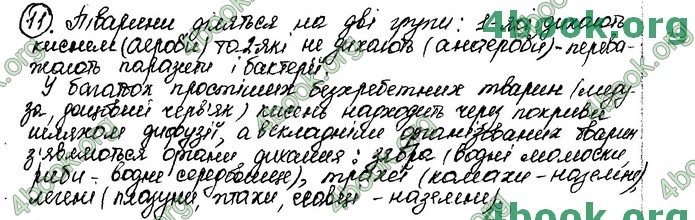 11. Тварини діляться на дві групи: 1-які дихають
киснем (аероби) та 2-які не дихають (анаероби) - перева-
жають паразити і бактерії.
У багатьох простіших безхребетних тварин (меду-
за, дощовий черв'як) кисень надходить через покриви
шляхом дифузії, а в складніших організованих тварин
з'являються органи дихання: зябра (водні молюски,
риби - водне середовище), трахеї (комахи - наземне),
легені (плазуни, птахи, ссавці - наземне)
Book.org
Book.org